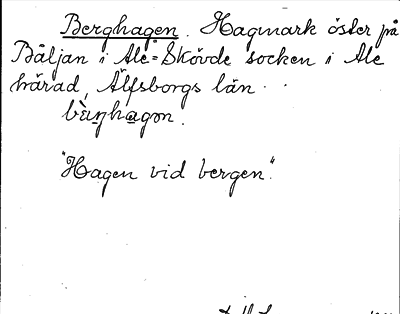 Berghagen. Hagmark öster på
Bäljan i Ale=Skövde socken i Ale
härad, Älfsborgs län.
bæ̀ŋhagən.
"Hagen vid bergen".